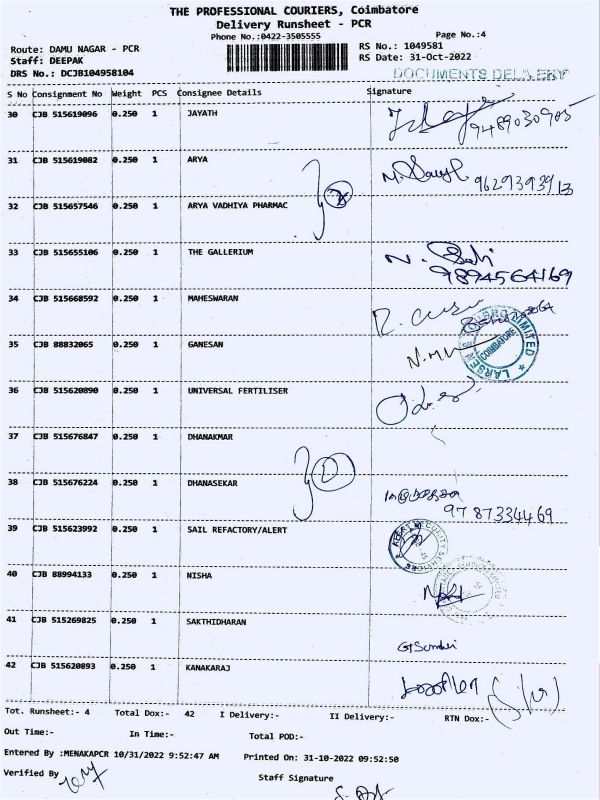 THE PROFESSIONAL COURIERS, Coimbatore
Delivery Runsheet - PCR
Phone No.:0422-3505555 Page No.:4
Route: DAMU NAGAR - PCR RS No.: 1049581
Staff: DEEPAK RS Date: 31-Oct-2022
DRS No.: DCJB104958104 DOCUMENTS DELIVERY
S No Consignment No Weight PCS Consignee Details Signature
30 CJB 515619096 0.250 1 JAYATH 9489030905
31 CJB 515619082 0.250 1 ARYA 9629393913
32 CJB 515657546 0.250 1 ARYA VADHIYA PHARMAC
33 CJB 515655106 0.250 1 THE GALLERIUM 9894564169
34 CJB 515668592 0.250 1 MAHESWARAN
35 CJB 88832065 0.250 1 GANESAN COIMBATORE
36 CJB 515620890 0.250 1 UNIVERSAL FERTILISER
37 CJB 515676847 0.250 1 DHANAKMAR
38 CJB 515676224 0.250 1 DHANASEKAR 9787334469
39 CJB 515623992 0.250 1 SAIL REFACTORY/ALERT
40 CJB 88994133 0.250 1 NISHA
41 CJB 515269825 0.250 1 SAKTHIDHARAN
42 CJB 515620893 0.250 1 KANAKARAJ
Tot. Runsheet:- 4 Total Dox:- 42 I Delivery:- II Delivery:- RTN Dox:-
Out Time:- In Time:- Total POD:-
Entered By :MENAKAPCR 10/31/2022 9:52:47 AM Printed On: 31-10-2022 09:52:50
Verified By Staff Signature